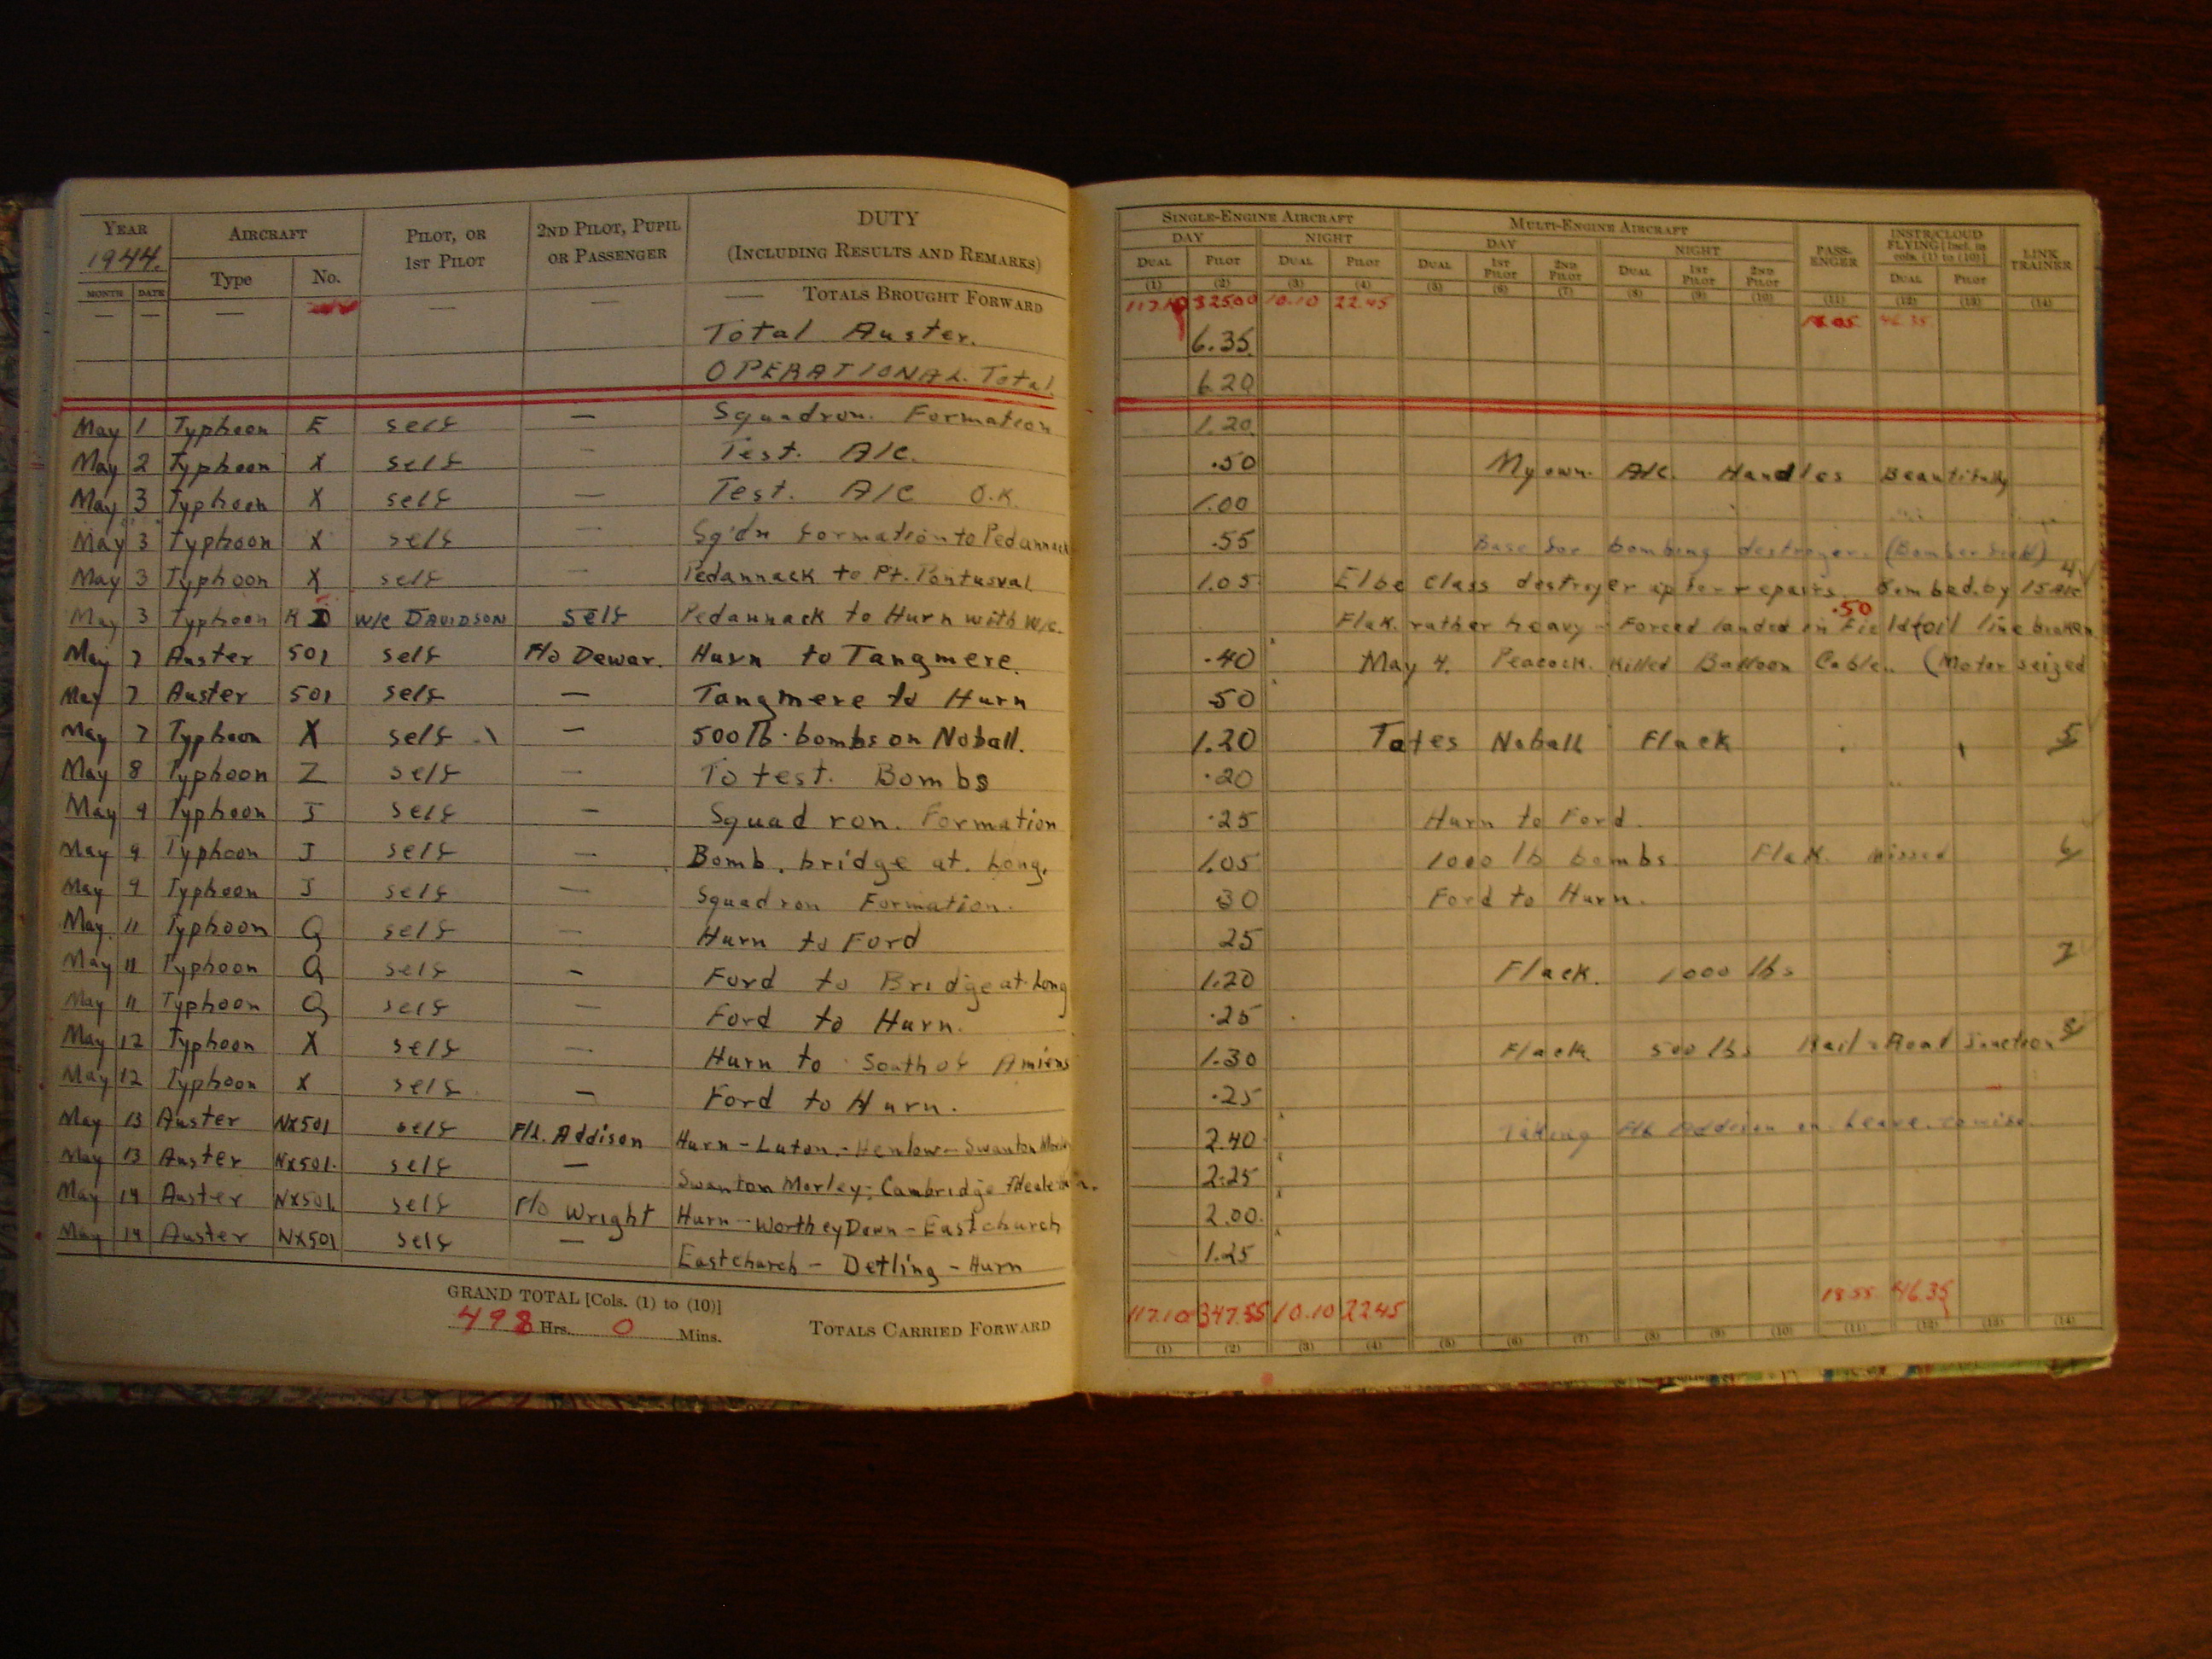 YEAR AIRCRAFT PILOT, OR 1ST PILOT 2ND PILOT, PUPIL OR PASSENGER DUTY (INCLUDING RESULTS AND REMARKS)
1944. Type No.
MONTH DATE
— — — — — — TOTALS BROUGHT FORWARD
Total Auster.
OPERATIONAL. Total
May 1 Typhoon E self — Squadron. Formation
May 2 Typhoon X self — Test. A/C.
May 3 Typhoon X self — Test. A/C O.K
May 3 Typhoon X self — Sq'dn formation to Pedannack
May 3 Typhoon X self — Pedannack to Pt. Pontusval
May 3 Typhoon D W/C DAVIDSON self Pedannack to Hurn with W/C.
May 7 Auster 501 self F/O Dewar. Hurn to Tangmere.
May 7 Auster 501 self — Tangmere to Hurn
May 7 Typhoon X self — 500 lb. bombs on Noball.
May 8 Typhoon Z self — To test. Bombs
May 9 Typhoon J self — Squadron. Formation
May 9 Typhoon J self — Bomb. bridge at. Long.
May 9 Typhoon J self — Squadron Formation.
May 11 Typhoon Q self — Hurn to Ford
May 11 Typhoon Q self — Ford to Bridge at Long
May 11 Typhoon Q self — Ford to Hurn.
May 12 Typhoon X self — Hurn to South of Amiens
May 12 Typhoon X self — Ford to Hurn.
May 13 Auster NX501 self F/L. Addison Hurn - Luton - Henlow - Swanton Morley
May 13 Auster NX501. self — Swanton Morley - Cambridge
May 14 Auster NX501 self F/O Wright Hurn - Worthey Down - Eastchurch
May 14 Auster NX501 self — Eastchurch - Detling - Hurn
GRAND TOTAL [Cols. (1) to (10)]
498 Hrs. 0 Mins. TOTALS CARRIED FORWARD
SINGLE-ENGINE AIRCRAFT MULTI-ENGINE AIRCRAFT PASS-ENGER INSTR/CLOUD FLYING [Incl. in cols. (1) to (10)] LINK TRAINER
DAY NIGHT DAY NIGHT
DUAL PILOT DUAL PILOT DUAL 1ST PILOT 2ND PILOT DUAL 1ST PILOT 2ND PILOT DUAL PILOT
(1) (2) (3) (4) (5) (6) (7) (8) (9) (10) (11) (12) (13) (14)
117.10 325.00 10.10 22.45 18.05 46.35
6.35
6.20
1.20
.50 My own. A/C. Handles Beautifully
1.00
.55 Base for bombing destroyer.
1.05 Elbe class destroyer up for repairs. Bombed by 15 A/C 4
Flak. rather heavy - Forced landed in Field (oil line broken .50
.40 May 4. Peacock. Killed Balloon Cable. (Motor seized
50
1.20 Noball Flack 5
.20
.25 Hurn to Ford.
1.05 1000 lb bombs Flak missed 6
30 Ford to Hurn.
25
1.20 Flack. 1000 lbs 7
.25
1.30 Flack 500 lbs Rail-Road Junction 8
.25
2.40 Taking F/L Addison on Leave.
2.25
2.00.
1.25
117.10 347.55 10.10 22.45 18.55 46.35
(1) (2) (3) (4) (5) (6) (7) (8) (9) (10) (11) (12) (13) (14)